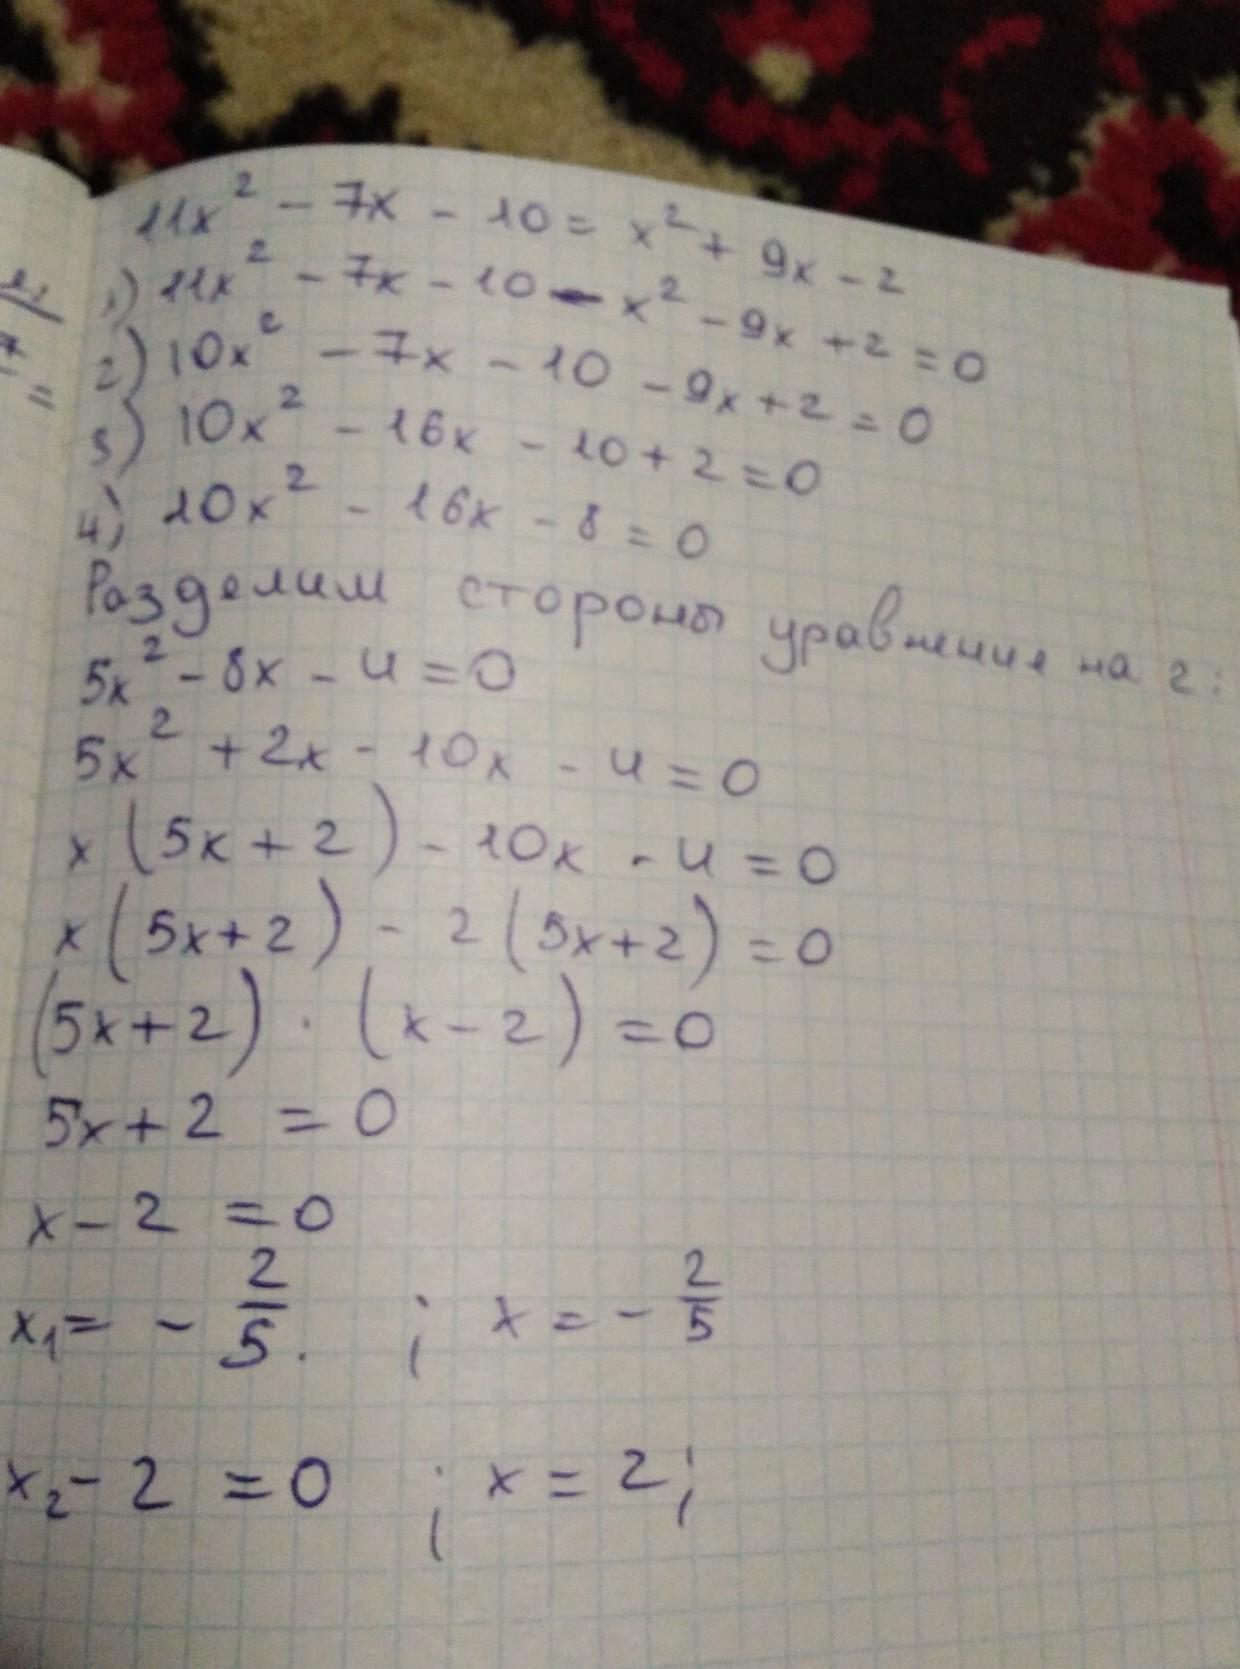 11x² - 7x - 10 = x² + 9x - 2
1) 11x² - 7x - 10 - x² - 9x + 2 = 0
2) 10x² - 7x - 10 - 9x + 2 = 0
3) 10x² - 16x - 10 + 2 = 0
4) 10x² - 16x - 8 = 0
Разделим стороны уравнения на 2:
5x² - 8x - 4 = 0
5x² + 2x - 10x - 4 = 0
x (5x + 2) - 10x - 4 = 0
x (5x + 2) - 2 (5x + 2) = 0
(5x + 2) · (x - 2) = 0
5x + 2 = 0
x - 2 = 0
x₁ = - 2/5. ; x = - 2/5
x₂ - 2 = 0 ; x = 2;